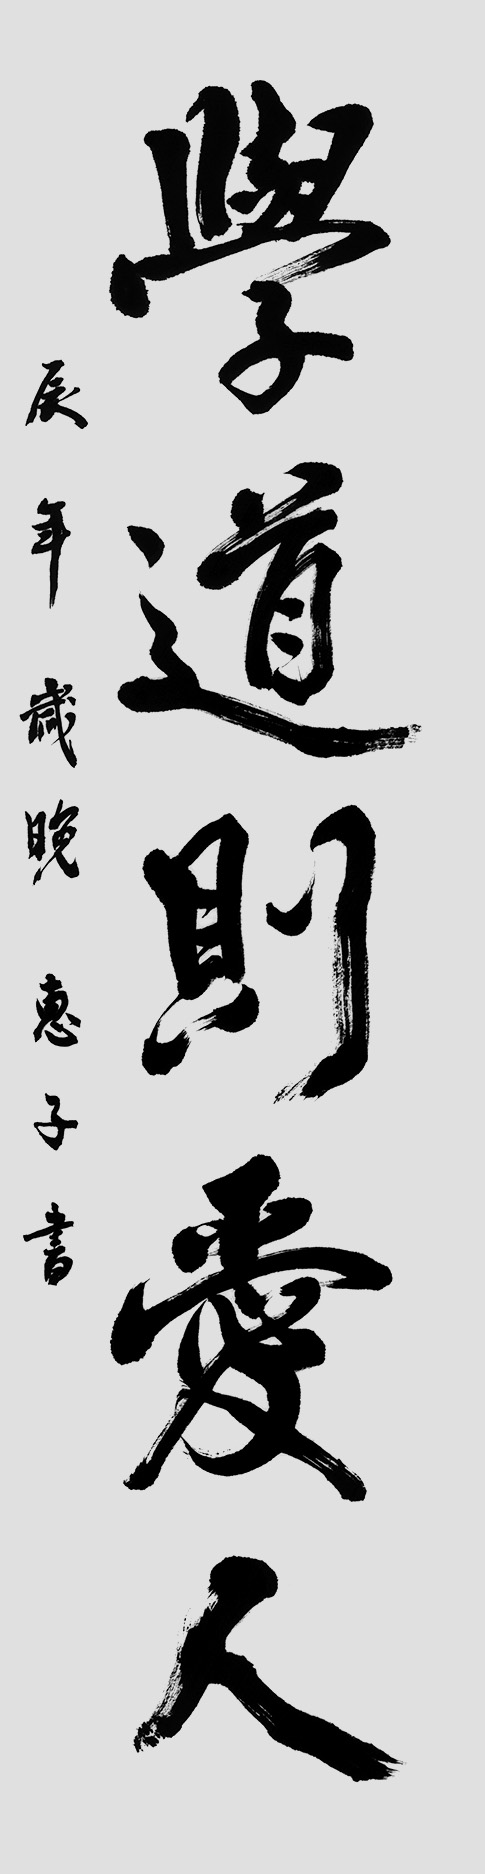 學道則愛人
辰年歳晩 惠子書